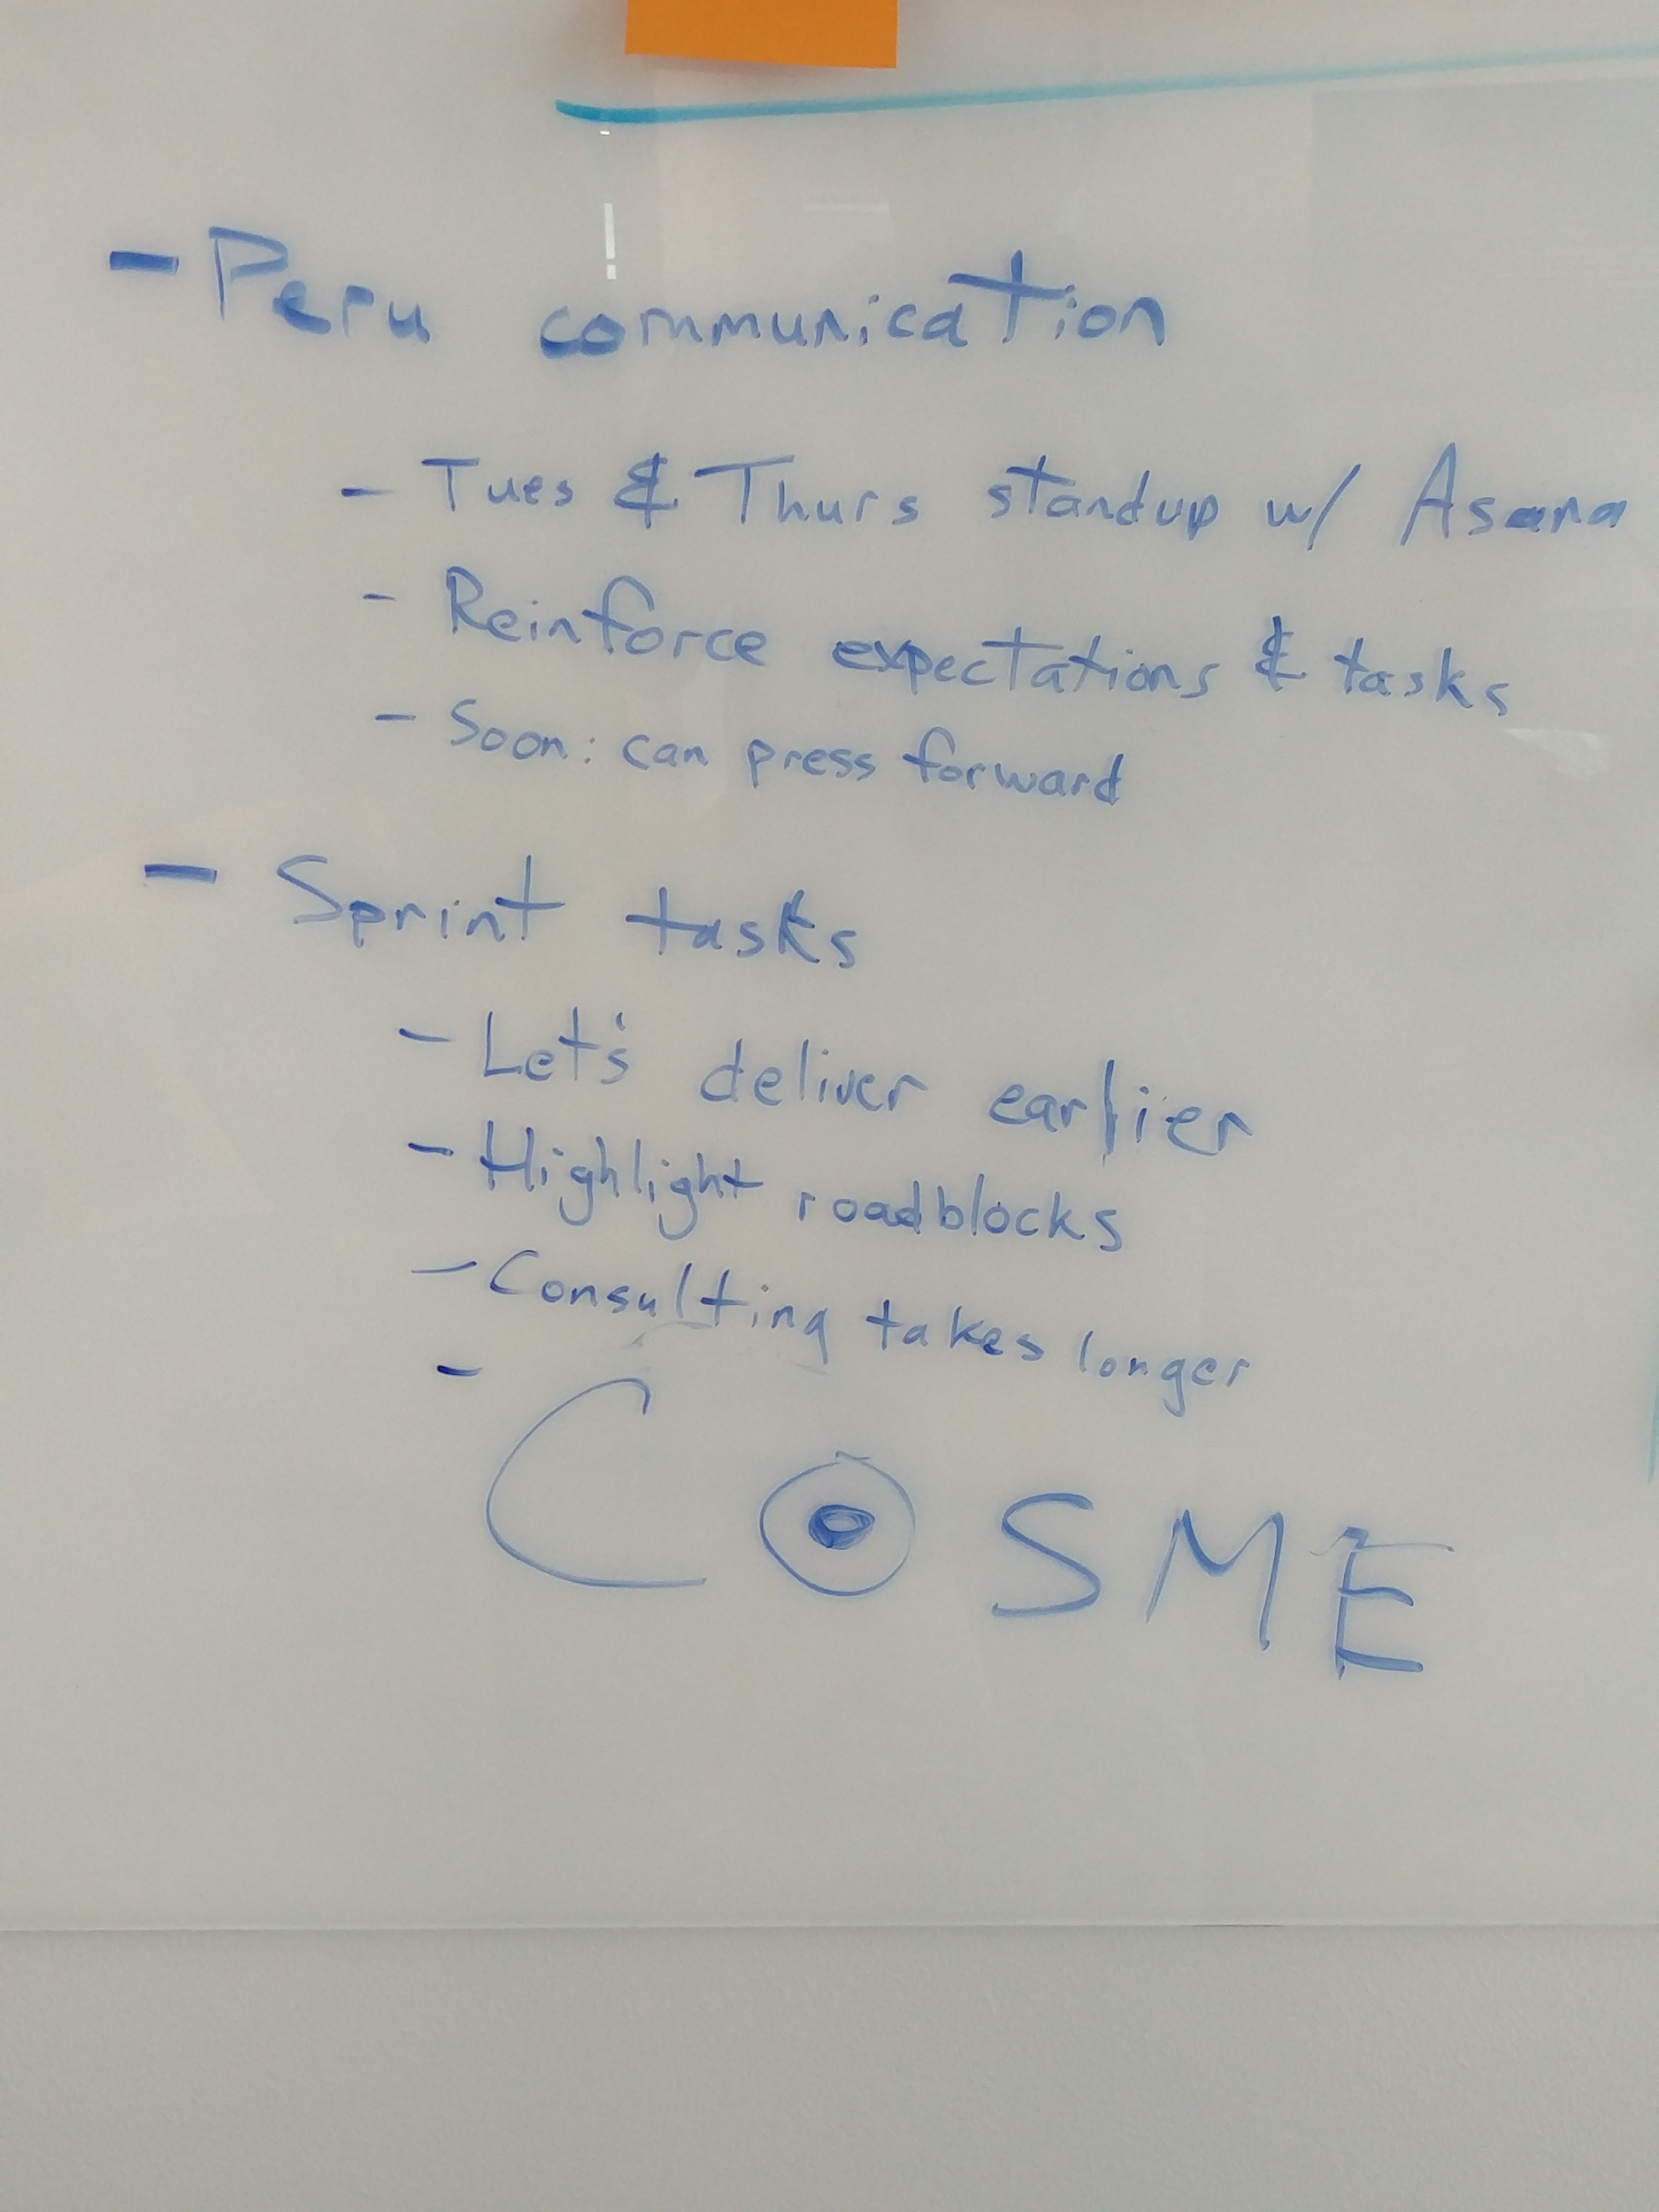 - Peru communication
- Tues & Thurs standup w/ Asana
- Reinforce expectations & tasks
- Soon: can press forward
- Sprint tasks
- Let's deliver earlier
- Highlight roadblocks
- Consulting takes longer
-
COSME